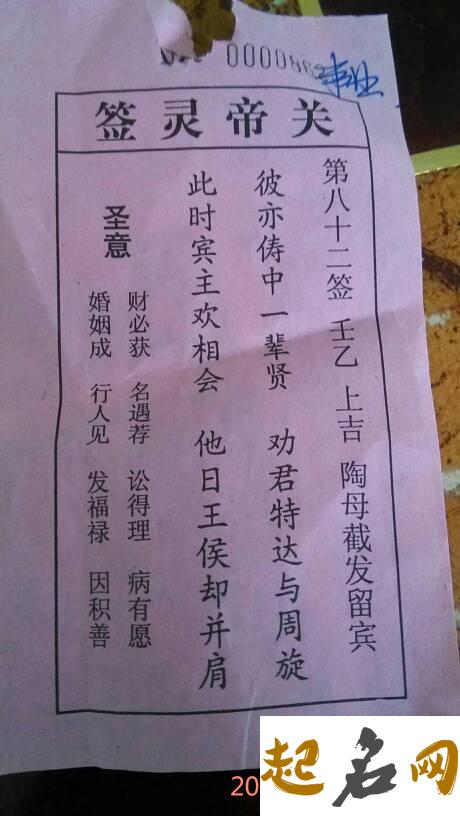 事业
关帝灵签
第八十二签 壬乙 上吉 陶母截发留宾
彼亦俦中一辈贤 劝君特达与周旋
此时宾主欢相会 他日王侯却并肩
圣意
财必获 名遇荐 讼得理 病有愿
婚姻成 行人见 发福禄 因积善
20
起名网